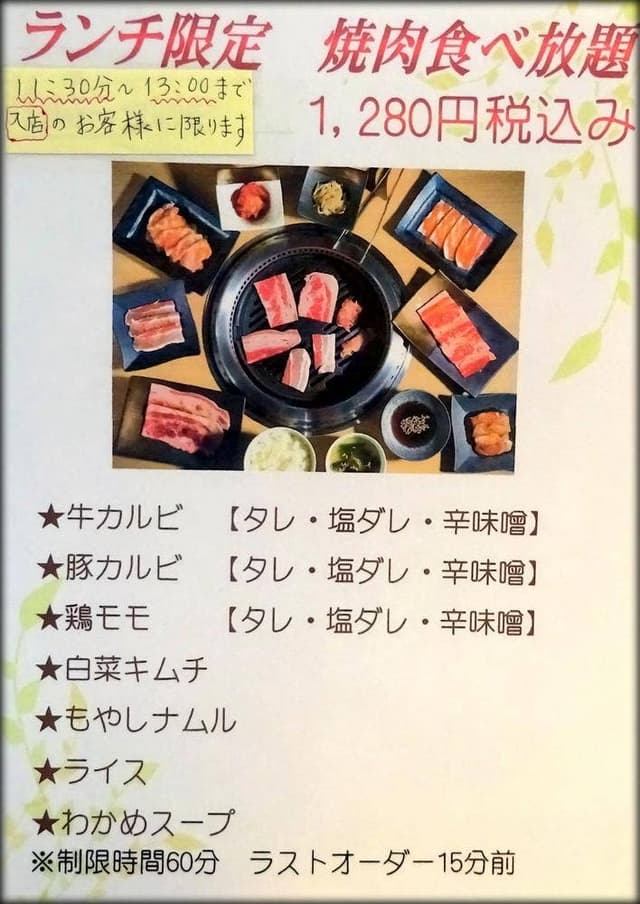 ランチ限定　焼肉食べ放題
11:30分〜13:00まで
入店のお客様に限ります
1,280円税込み
★牛カルビ　【タレ・塩ダレ・辛味噌】
★豚カルビ　【タレ・塩ダレ・辛味噌】
★鶏モモ　【タレ・塩ダレ・辛味噌】
★白菜キムチ
★もやしナムル
★ライス
★わかめスープ
※制限時間60分　ラストオーダー15分前